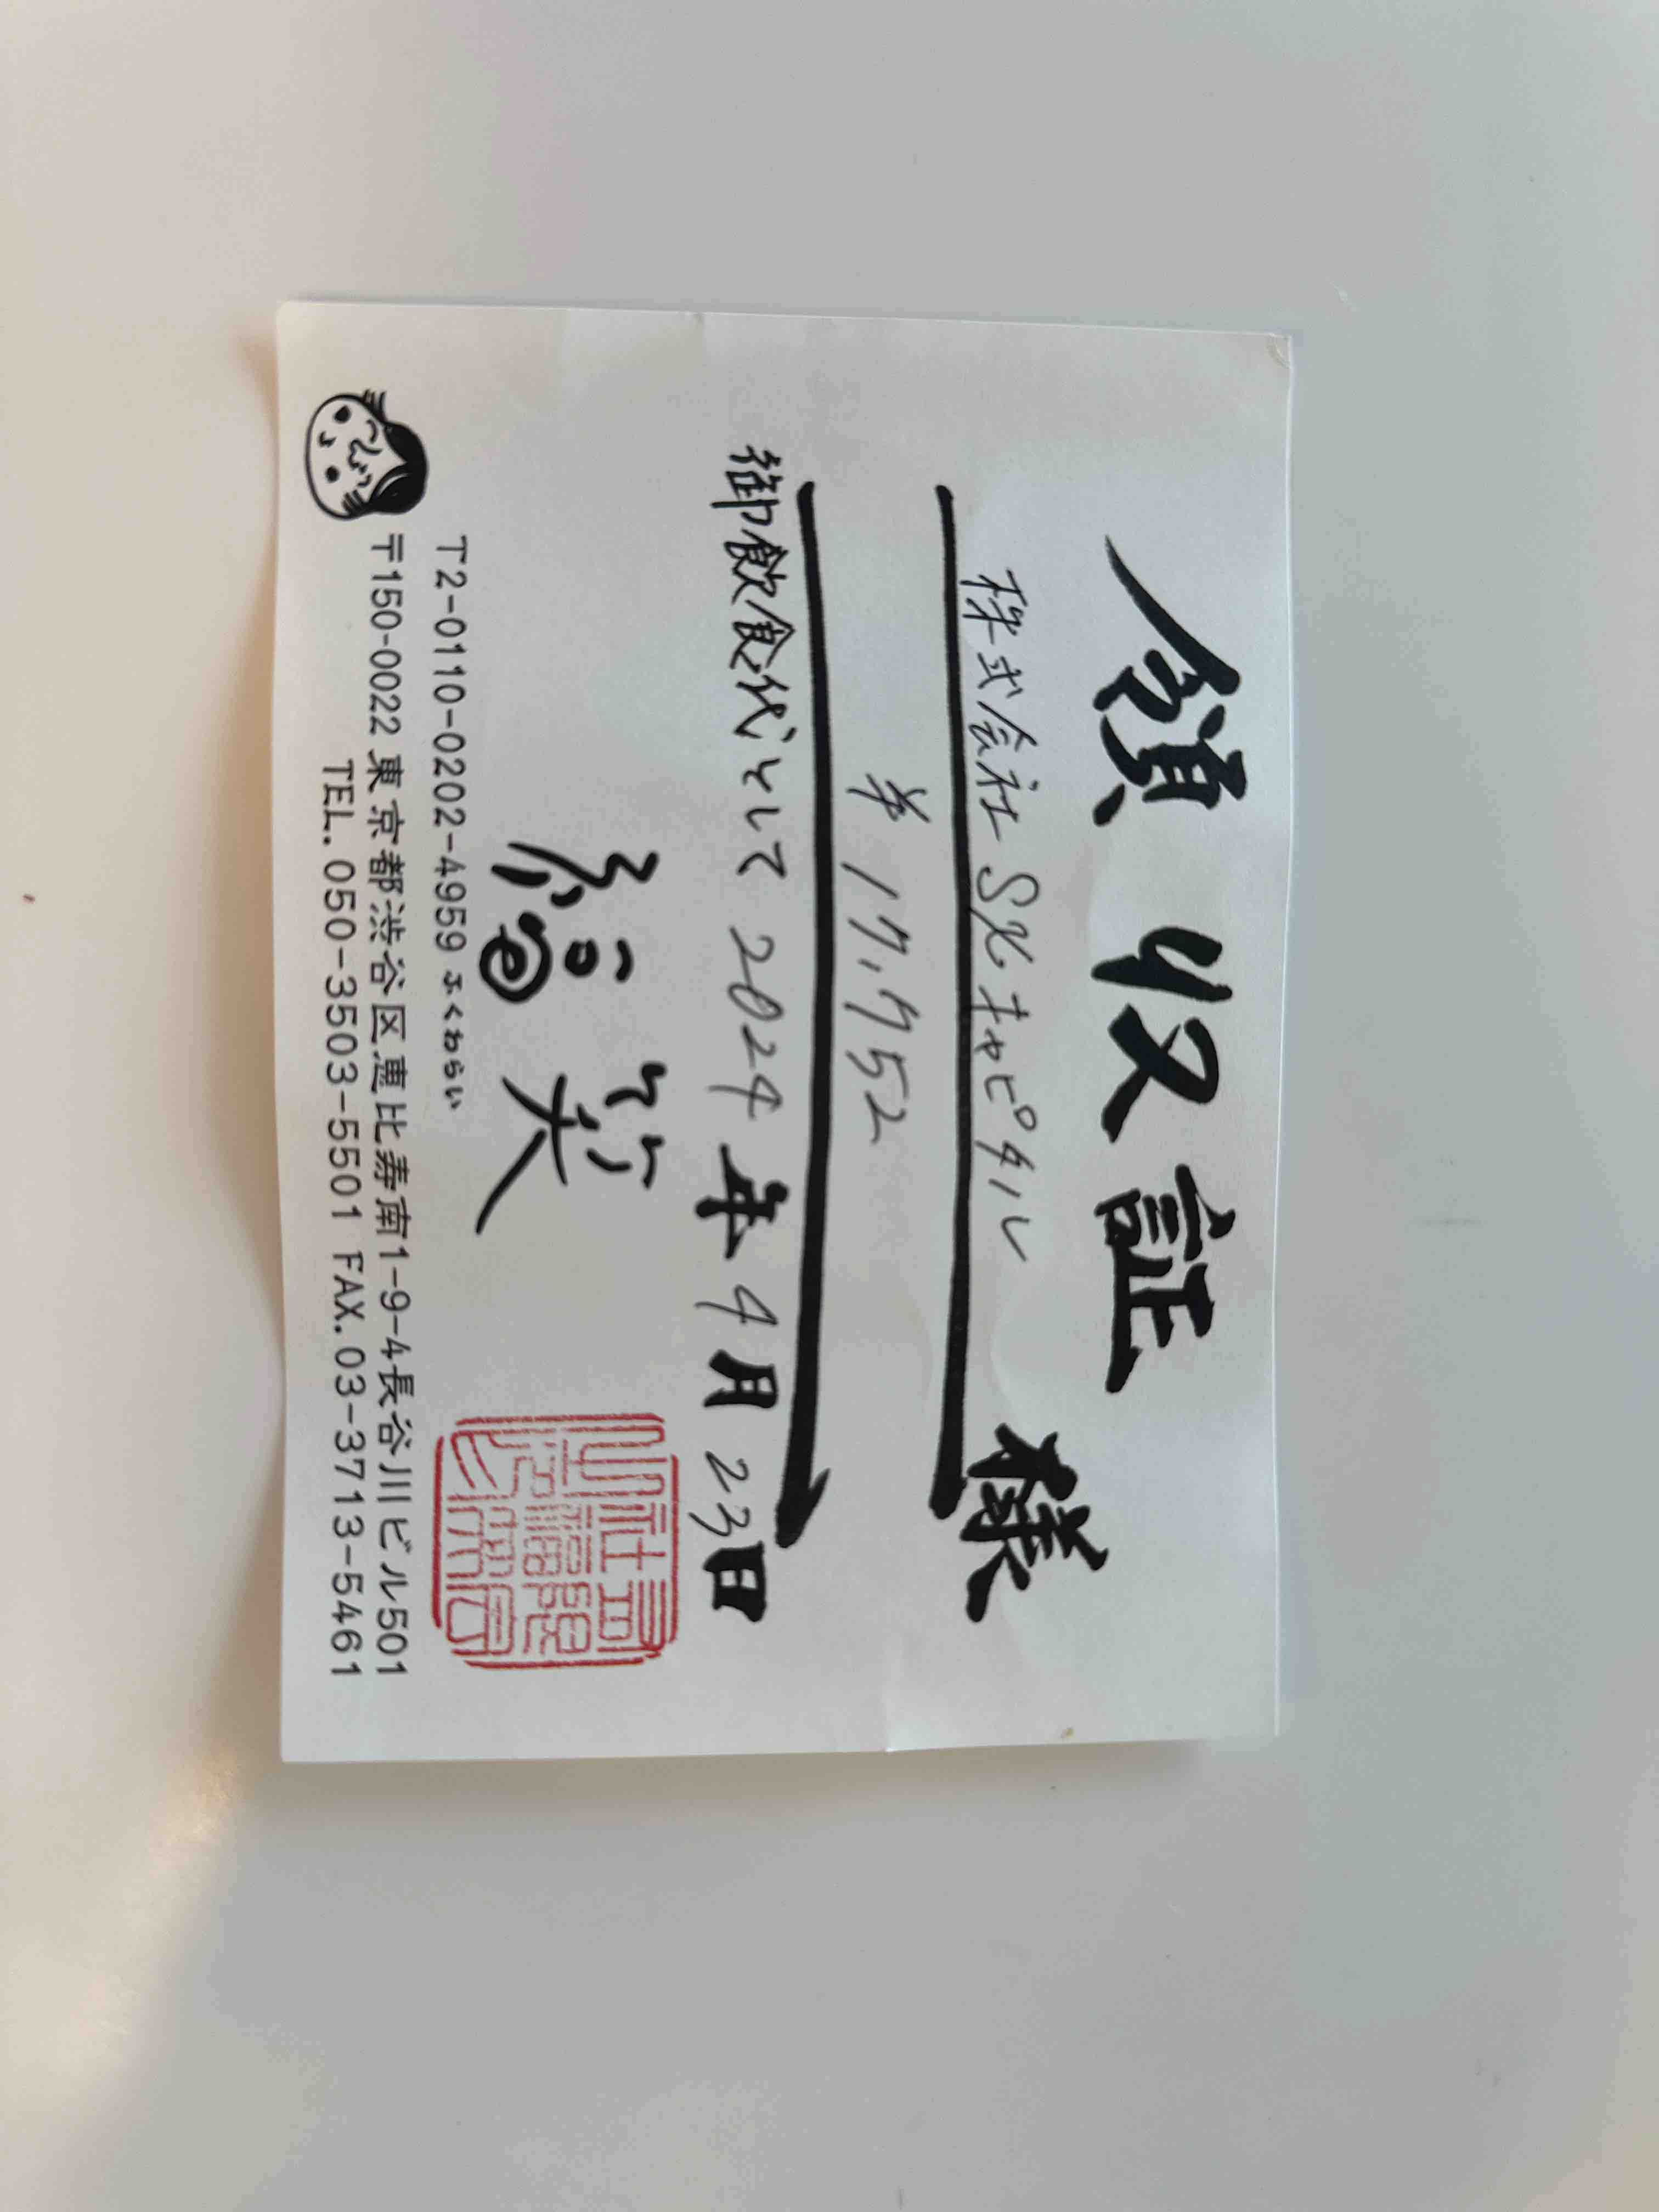 領収証
株式会社 SXキャピタル 様
¥17,752
御飲食代として 2024年4月23日
福笑
T2-0110-0202-4959 ふくわらい
〒150-0022 東京都渋谷区恵比寿南1-9-4長谷川ビル501
TEL.050-3503-5501 FAX.03-3713-5461